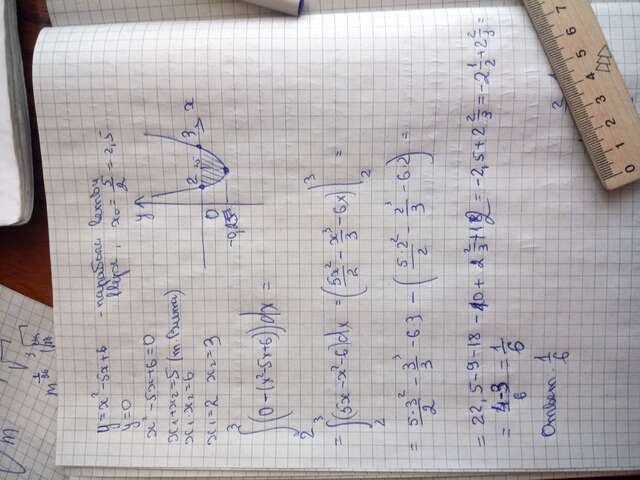 y=x²-5x+6 - парабола ветви
y=0 вверх, x₀=5/2=2,5
x²-5x+6=0
x₁+x₂=5 (т. Виета)
x₁x₂=6
x₁=2 x₂=3
y
2 3 x
0
-0,25
∫₂³(0-(x²-5x+6))dx =
= ∫₂³(5x-x²-6)dx = (5x²/2 - x³/3 - 6x)|₂³ =
= 5·3²/2 - 3³/3 - 6·3 - (5·2²/2 - 2³/3 - 6·2) =
= 22,5-9-18-10+2 2/3+12 = -2,5+2 2/3 = -2 1/2+2 2/3 =
= 4-3/6 = 1/6
Ответ: 1/6
0 1 2 3 4 5 6 7